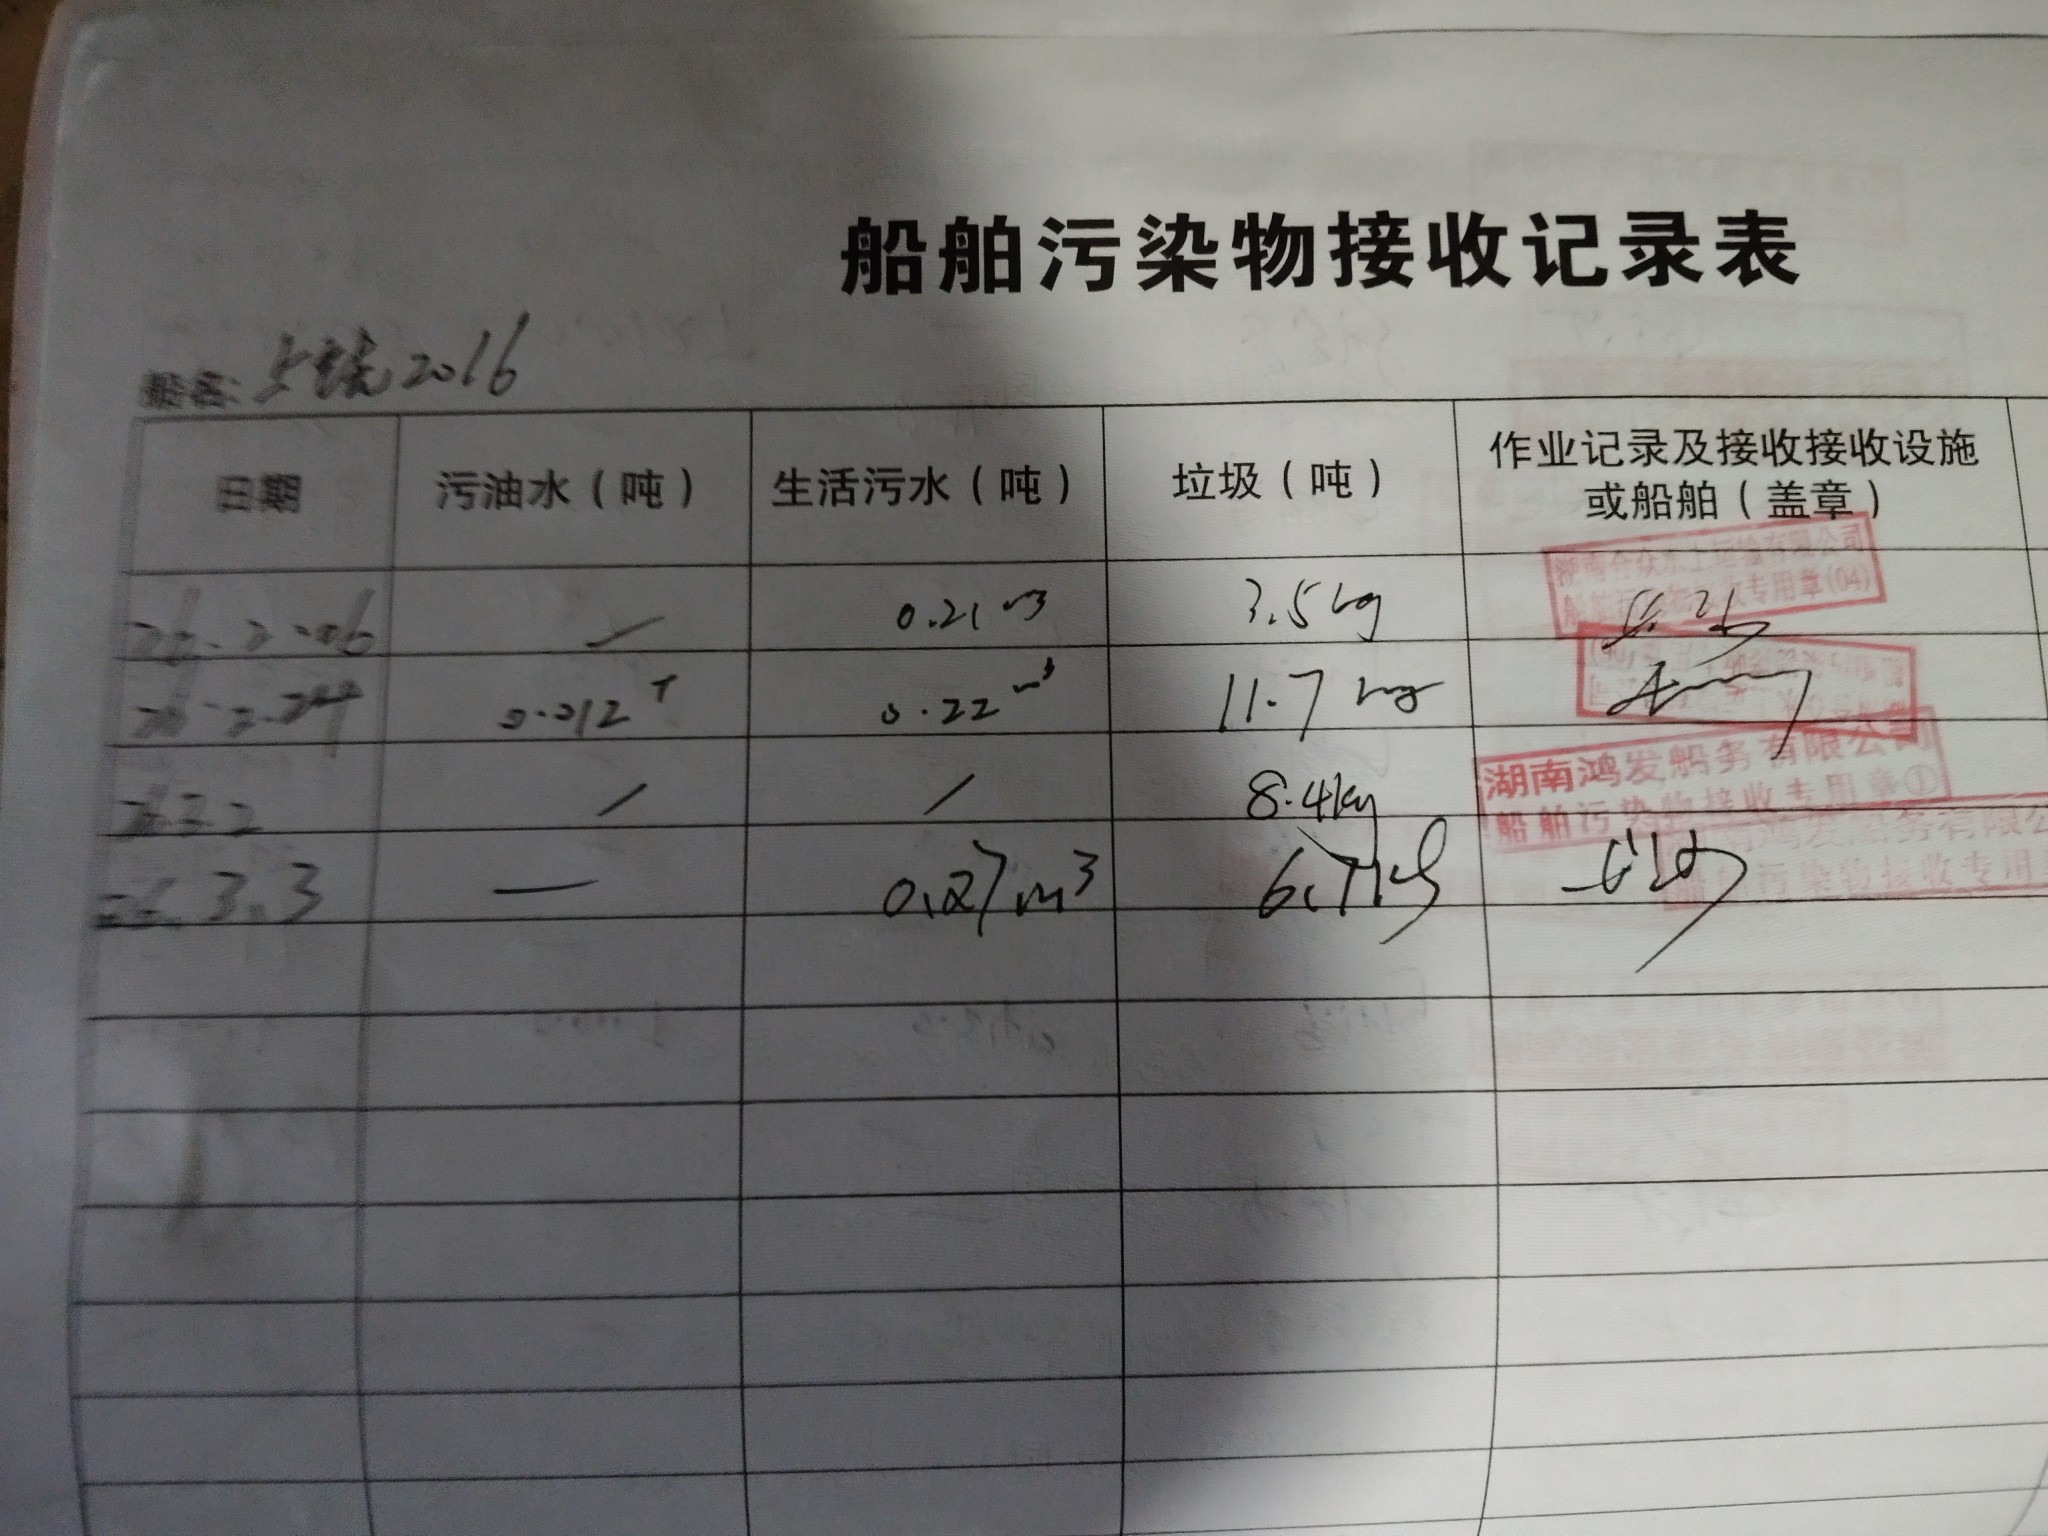 船舶污染物接收记录表
船名: 2016
日期 污油水（吨） 生活污水（吨） 垃圾（吨） 作业记录及接收接收设施
或船舶（盖章）
湖南合众水上运输有限公司
船舶污染物接收专用章(04)
26.2.06 / 0.21 m3 3.5kg
26.2.24 0.012 T 0.22 m³ 11.7 kg
湖南鸿发船务有限公司
船舶污染物接收专用章①
26.3.2 / / 8.4kg
鸿发船务有限公
污染物接收专用
26.3.3 — 0.27m³ 6.7kg